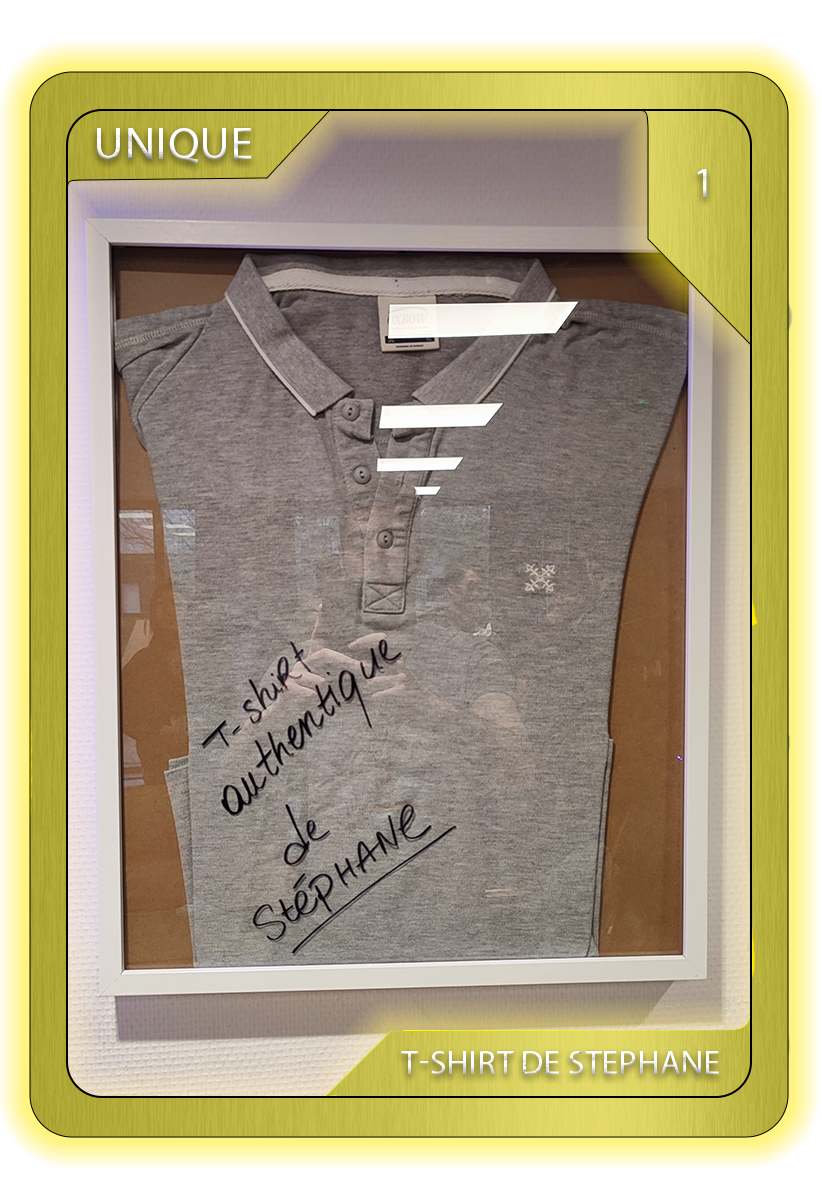 UNIQUE
1
OXBOW
T-shirt
authentique
de
Stéphane
T-SHIRT DE STEPHANE